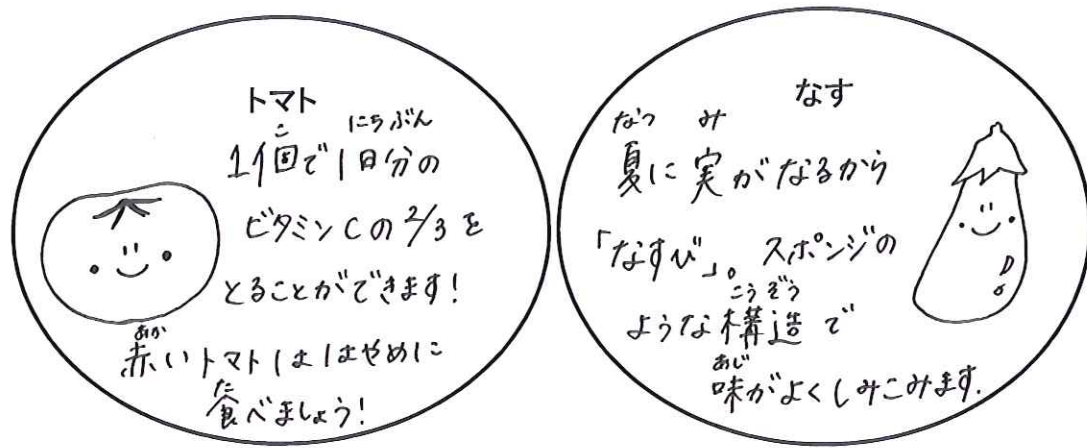 トマト
1個で1日分の
ビタミンCの2/3を
とることができます!
赤いトマトははやめに
食べましょう!
なす
夏に実がなるから
「なすび」。スポンジの
ような構造で
味がよくしみこみます.